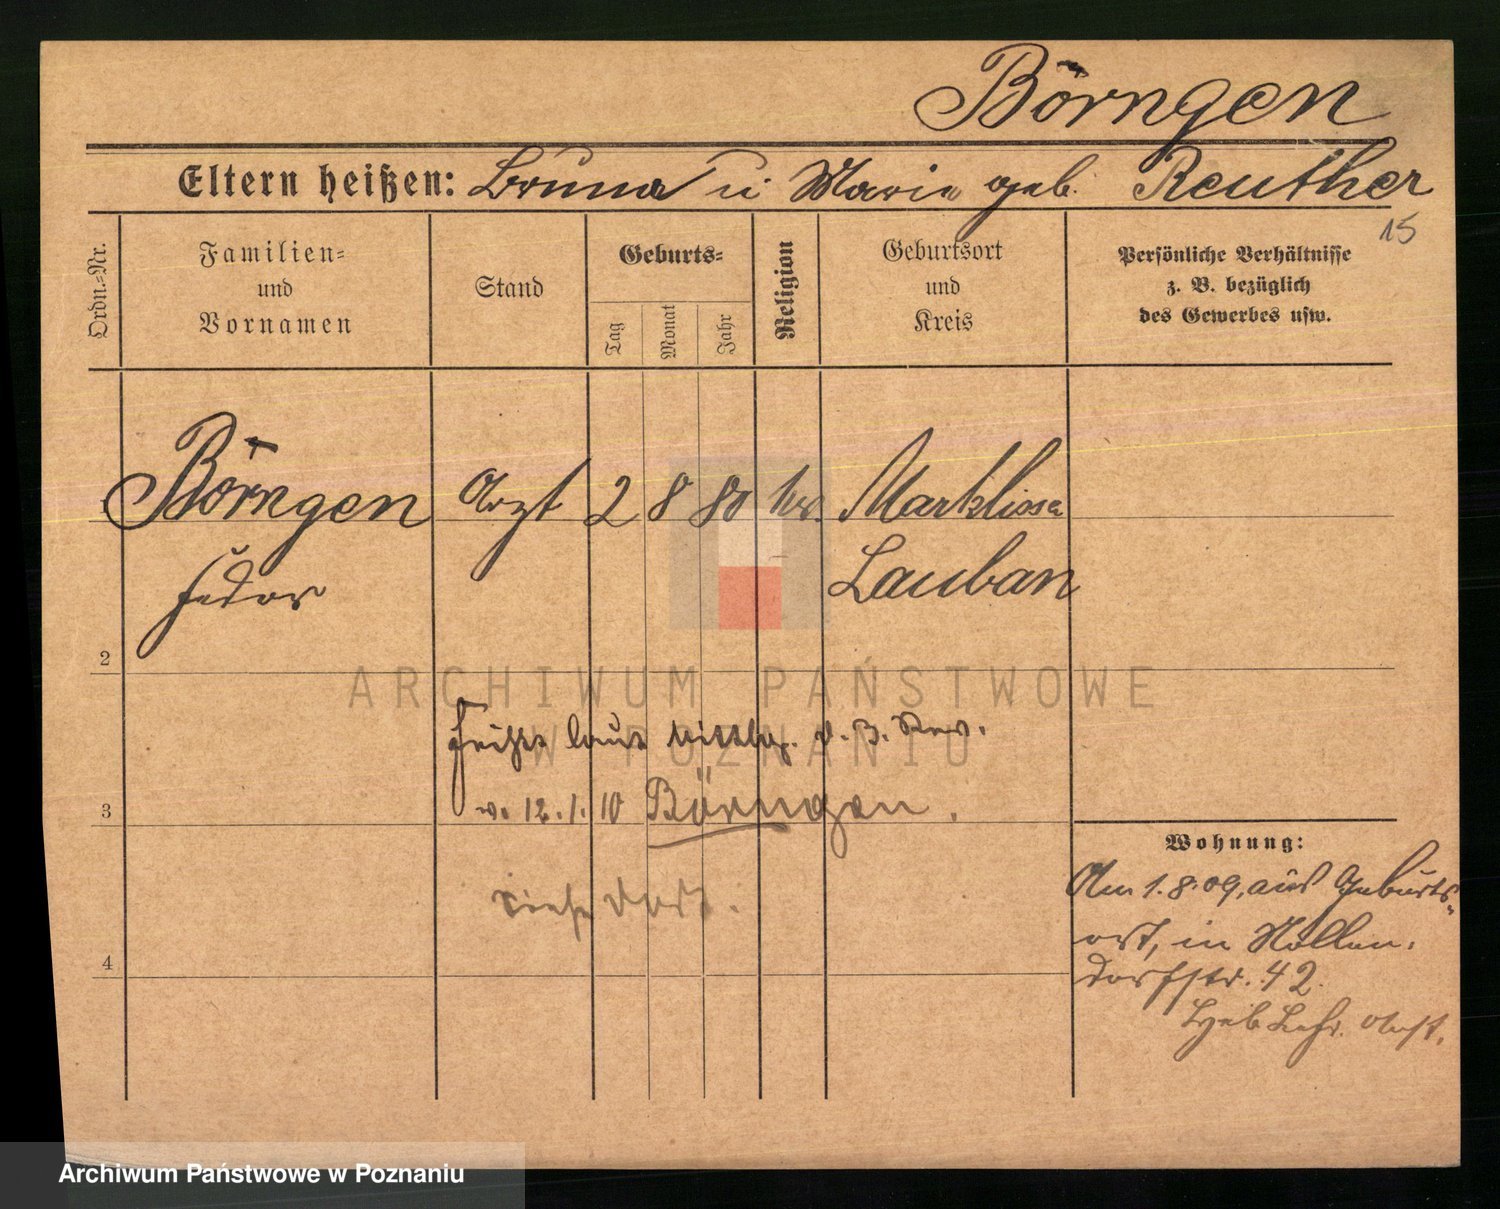 Börngen
Eltern heißen: Bruno u Marie geb. Reuther
15
Ordn.-Nr.
Familien- und Vornamen
Stand
Geburts-
Tag
Monat
Jahr
Religion
Geburtsort und Kreis
Persönliche Verhältnisse
z. B. bezüglich
des Gewerbes usw.
Börngen Arzt 2 8 80 Marklissa
Fedor Lauban
2
ARCHIWUM PAŃSTWOWE
W POZNANIU
heißt laut Mittlg. d. B. Rev.
3 v. 12.1.10 Börngen.
siehe dort.
4
Wohnung:
Am 1.8.09. aus Geburts-
ort, in Nollen-
dorfstr. 42.
Archiwum Państwowe w Poznaniu